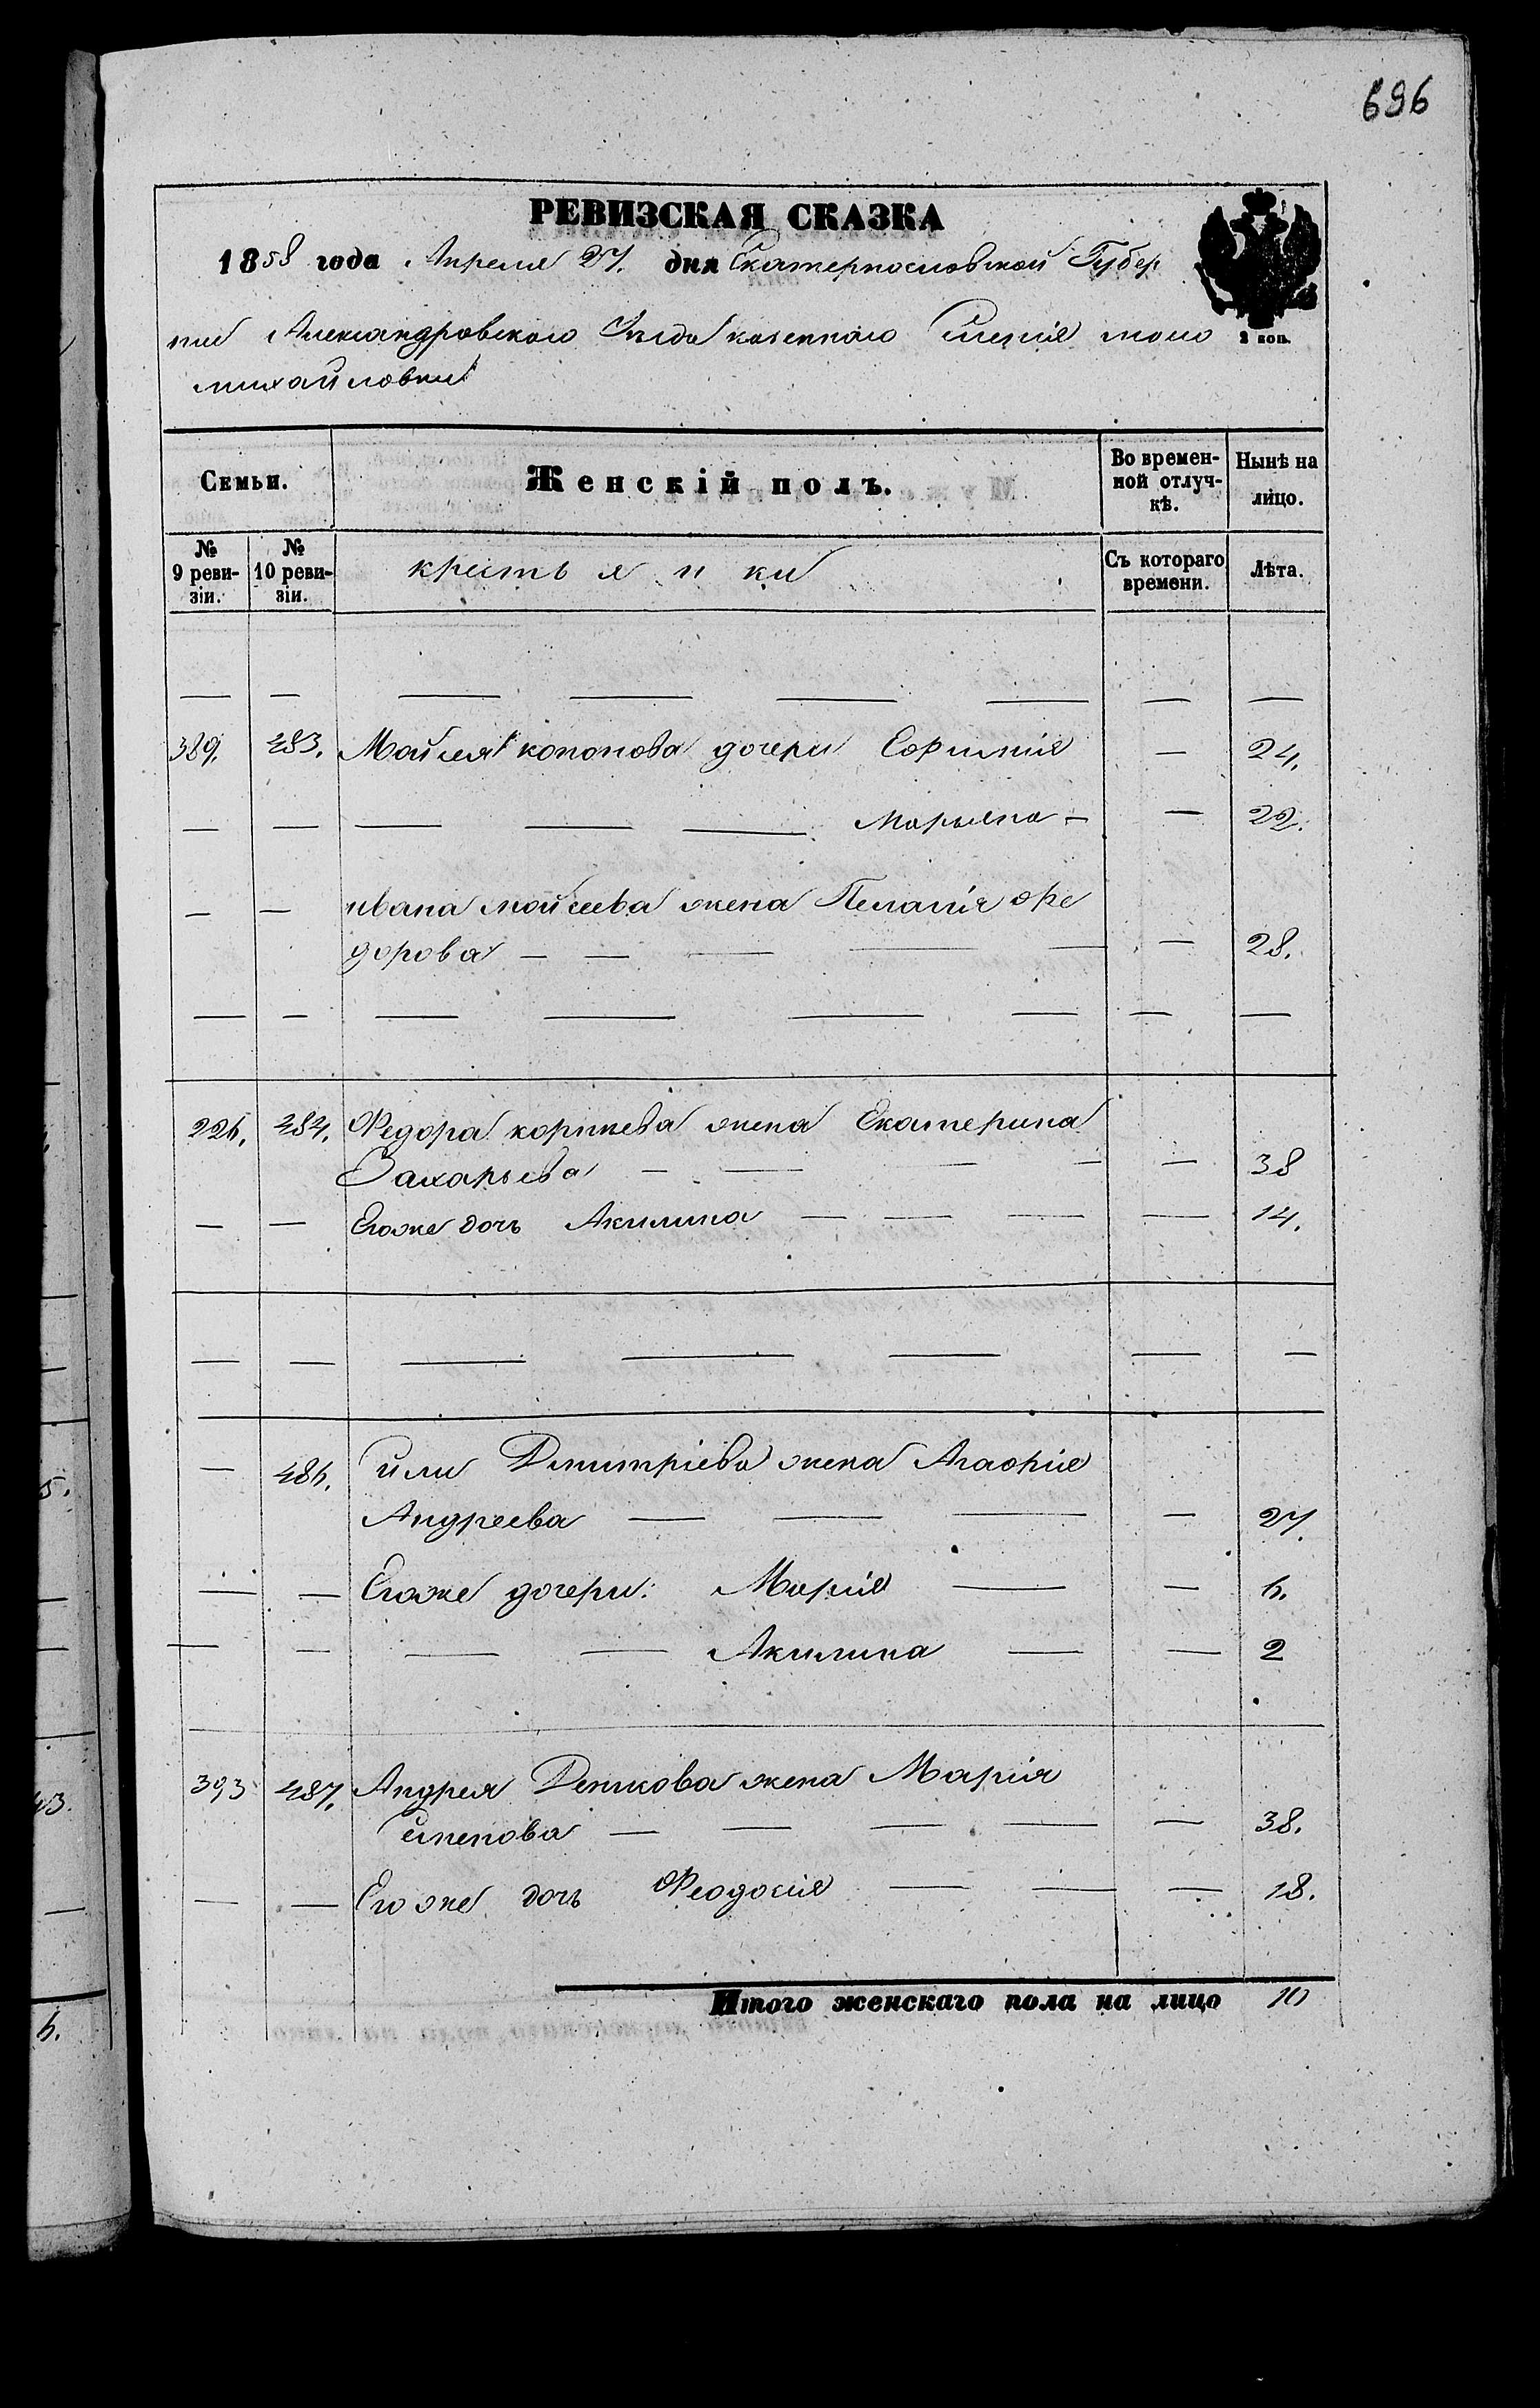 696
РЕВИЗСКАЯ СКАЗКА
1858 года Апреля 27. дня Екатеринославской Губер
нии Александровского Уезда казенного Селенія мало
михайловки
2 коп.
Семьи. Женскій полъ. Во времен- Нынѣ на
ной отлуч- лицо.
кѣ.
№ № крестьянки Съ котораго Лѣта.
9 реви- 10 реви- времени.
зіи. зіи.
— — — — — — — —
389. 483. Мойсея кононова дочери Софимія — 24.
— — — — — Марьяна — — 22.
— — ивана мойсеева жена Пелагія фе
дорова — — — — — — 28.
— — — — — — — —
226. 484. Федора корнѣева жена Екатерина
Захарьева — — — — — 38
— — Егоже дочь Акилина — — — — 14.
— — — — — — —
— 486. или Дмитріева жена Агафія
Андреева — — — — 27.
— — Егоже дочери: Марія — — 6.
— — — — Акилина — — 2
393 487. Андрея Денисова жена Марія
семенова — — — — — 38.
— — Егоже дочь Феодосія — — — 18.
Итого женскаго пола на лицо 10
5.
43.
6.